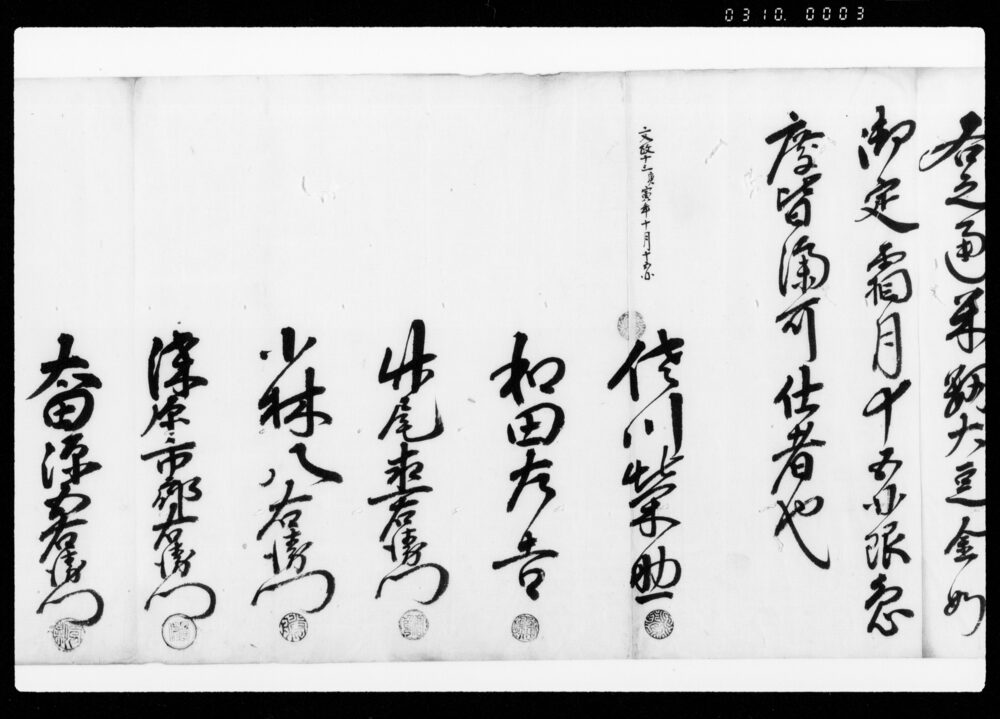 0310. 0003
右之通米籾大豆金如
御定霜月十五日限急
度皆済可仕者也
文政十三庚寅年十月十五日
佐川栄助
和田左吉
竹尾喜右衛門
小林八右衛門
深原市郎右衛門
奋田源五右衛門